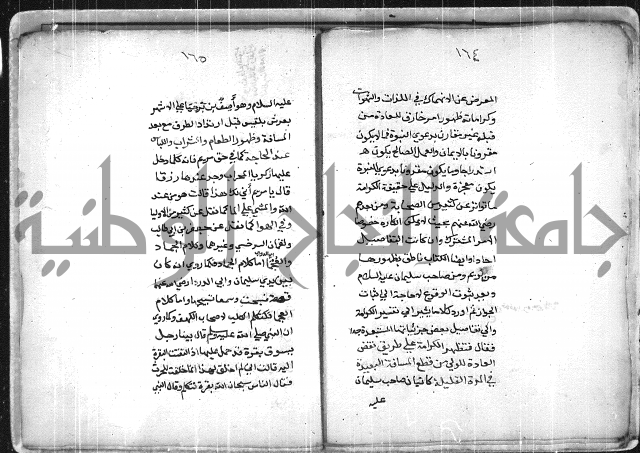 ١٦٤
المعرض عن الانهماك في اللذات والشهوات
وكراماته ظهور امر خارق للعادة من
قبله غير مقارن بدعوى النبوة فما لا يكون
مقرونا بالايمان والعمل الصالح يكون
استدراجا وما يكون مقرونا بدعوى النبوة
يكون معجزة والدليل على حقيقة الكرامة
ما تواتر عن كثير من الصحابة ومن بعدهم
بحيث لا يمكن انكاره خصوصا
الامر المشترك وان كانت التفاصيل
احادا وايضا الكتاب ناطق بظهورها
من مريم ومن صاحب سليمان عليه السلام
وبعد ثبوت الوقوع لا حاجة الى اثبات
الجواز ثم اورد كلاما يشير الى تفسير الكرامة
والى تفاصيل بعض جزئياتها المستبعدة
فقال فتظهر الكرامة على طريق نقض
العادة للولي من قطع المسافة البعيدة
في المدة القليلة كاتيان صاحب سليمان
عليه
١٦٥
عليه السلام وهو آصف بن برخيا على الاشهر
بعرش بلقيس قبل ارتداد الطرف مع بعد
المسافة وظهور الطعام والشراب واللباس
عند الحاجة كما في حق مريم فانه كلما دخل
عليها زكريا المحراب وجد عندها رزقا
قال يا مريم أنى لك هذا قالت هو من عند
الله والمشي على الماء كما نقل عن كثير من الاوليا
وفي الهوا كما نقل عن جعفر بن ابي طالب
ولقمان السرخسي وغيرهما وكلام الجماد
والعجما اما كلام الجماد فكما روي انه كان
بين يدي سلمان وابي الدردا رضي الله عنهما
قصعة فسبحت وسمعا تسبيحها واما كلام
العجما فكتكلم الكلب لاصحاب الكهف وكما روي
ان النبي صلى الله عليه وسلم قال بينما رجل
يسوق بقرة قد حمل عليها اذ التفتت البقرة
اليه قالت اني لم اخلق لهذا انما خلقت للحرث
فقال الناس سبحان الله بقرة تتكلم وقال النبي
جامعة النجاح الوطنية